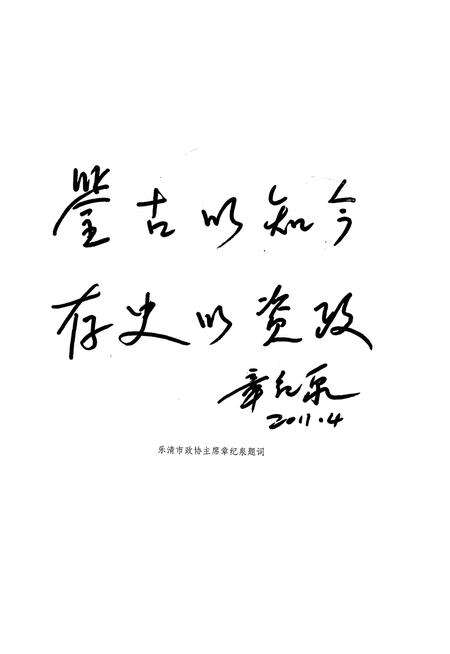 鉴古以知今
存史以资政
章纪泉
2011.4
乐清市政协主席章纪泉题词